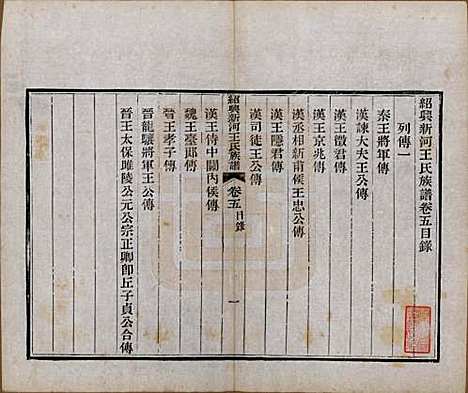 紹興新河王氏族譜卷五目錄
列傳一
秦王將軍傳
漢諫大夫王公傳
漢王徵君傳
漢王京兆傳
漢丞相新甫侯王忠公傳
漢王隱君傳
漢司徒王公傳
紹興新河王氏族譜 卷五 目錄 一
漢王侍中關內侯傳
魏王臺郎傳
晉王孝子傳
晉龍驤將軍王公傳
晉王太保睢陵公元公宗正卿即丘子貞公合傳